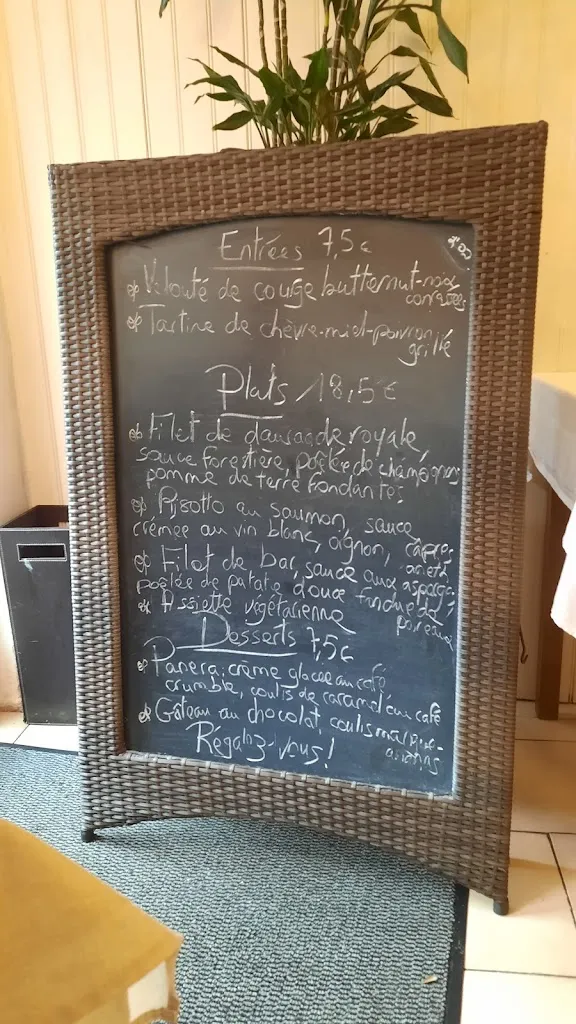 Entrées 7,5€
Velouté de courge butternut-noix
concassées
Tartine de chèvre-miel-poivron
grillé
Plats 18,5€
Filet de daurade royale,
sauce forestière, poêlée de champignons
pomme de terre fondantes
Risotto au saumon, sauce
crémée au vin blanc, oignon, câpres
aneth
Filet de bar, sauce aux asperges,
poêlée de patate douce fondue de
poireaux
Assiette végétarienne
Desserts 7,5€
crème glacée au café
crumble, coulis de caramel au café
Gâteau au chocolat, coulis
Régalez-vous!